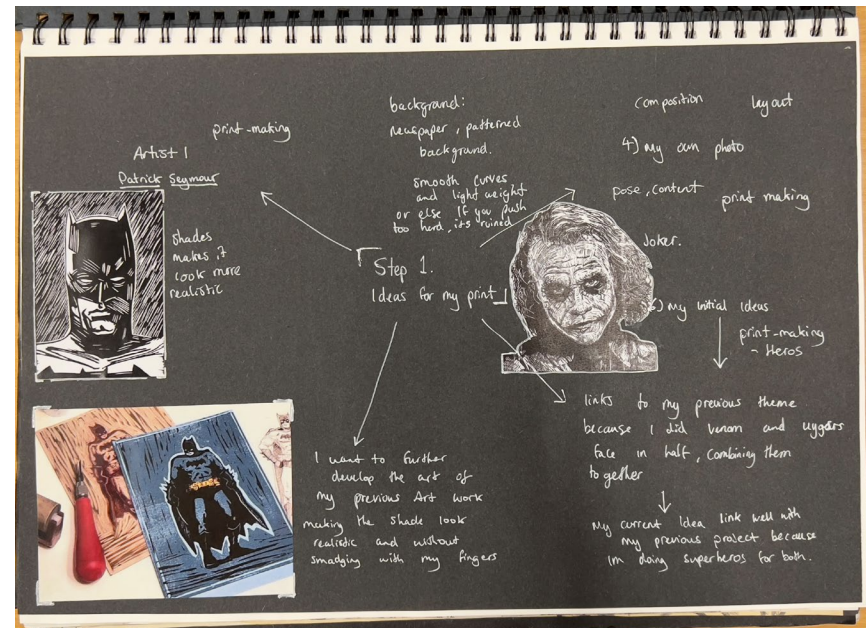 print-making
Artist 1
Patrick Seymour
shades
makes it
look more
realistic
background:
newspaper, patterned
background.
smooth curves
and light weight
or else If you push
too hard, it's ruined
composition layout
4) my own photo
pose, content print making
Joker.
Step 1.
Ideas for my print
6) my initial Ideas
print-making
- Heros
links to my previous theme
because I did venom and
face in half, combining them
together
My current Idea link well with
my previous project because
Im doing superheros for both.
I want to further
develop the art of
my previous Art work
making the shade look
realistic and without
smadging with my fingers